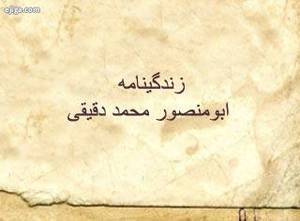 ejgga.com
زندگینامه
ابومنصور محمد دقیقی